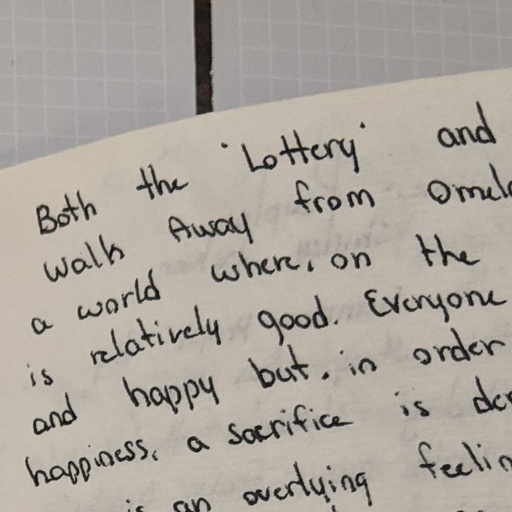 Both the 'Lottery' and
Walk Away from Omel
a world where, on the
is relatively good. Everyone
and happy but, in order
happiness, a sacrifice is
is an overlying